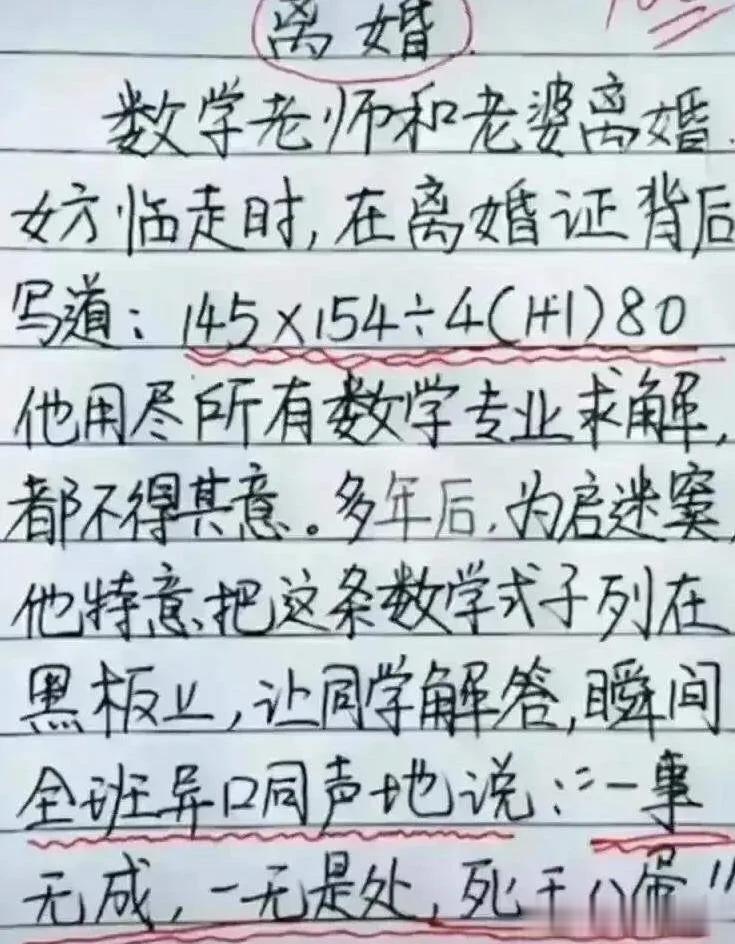 离婚
数学老师和老婆离婚.
女方临走时,在离婚证背后
写道:145×154÷4(1+1)80
他用尽所有数学专业求解,
都不得其意。多年后,为启迷窦,
他特意把这条数学式子列在
黑板上,让同学解答,瞬间
全班异口同声地说:“一事
无成,一无是处,死王八蛋”